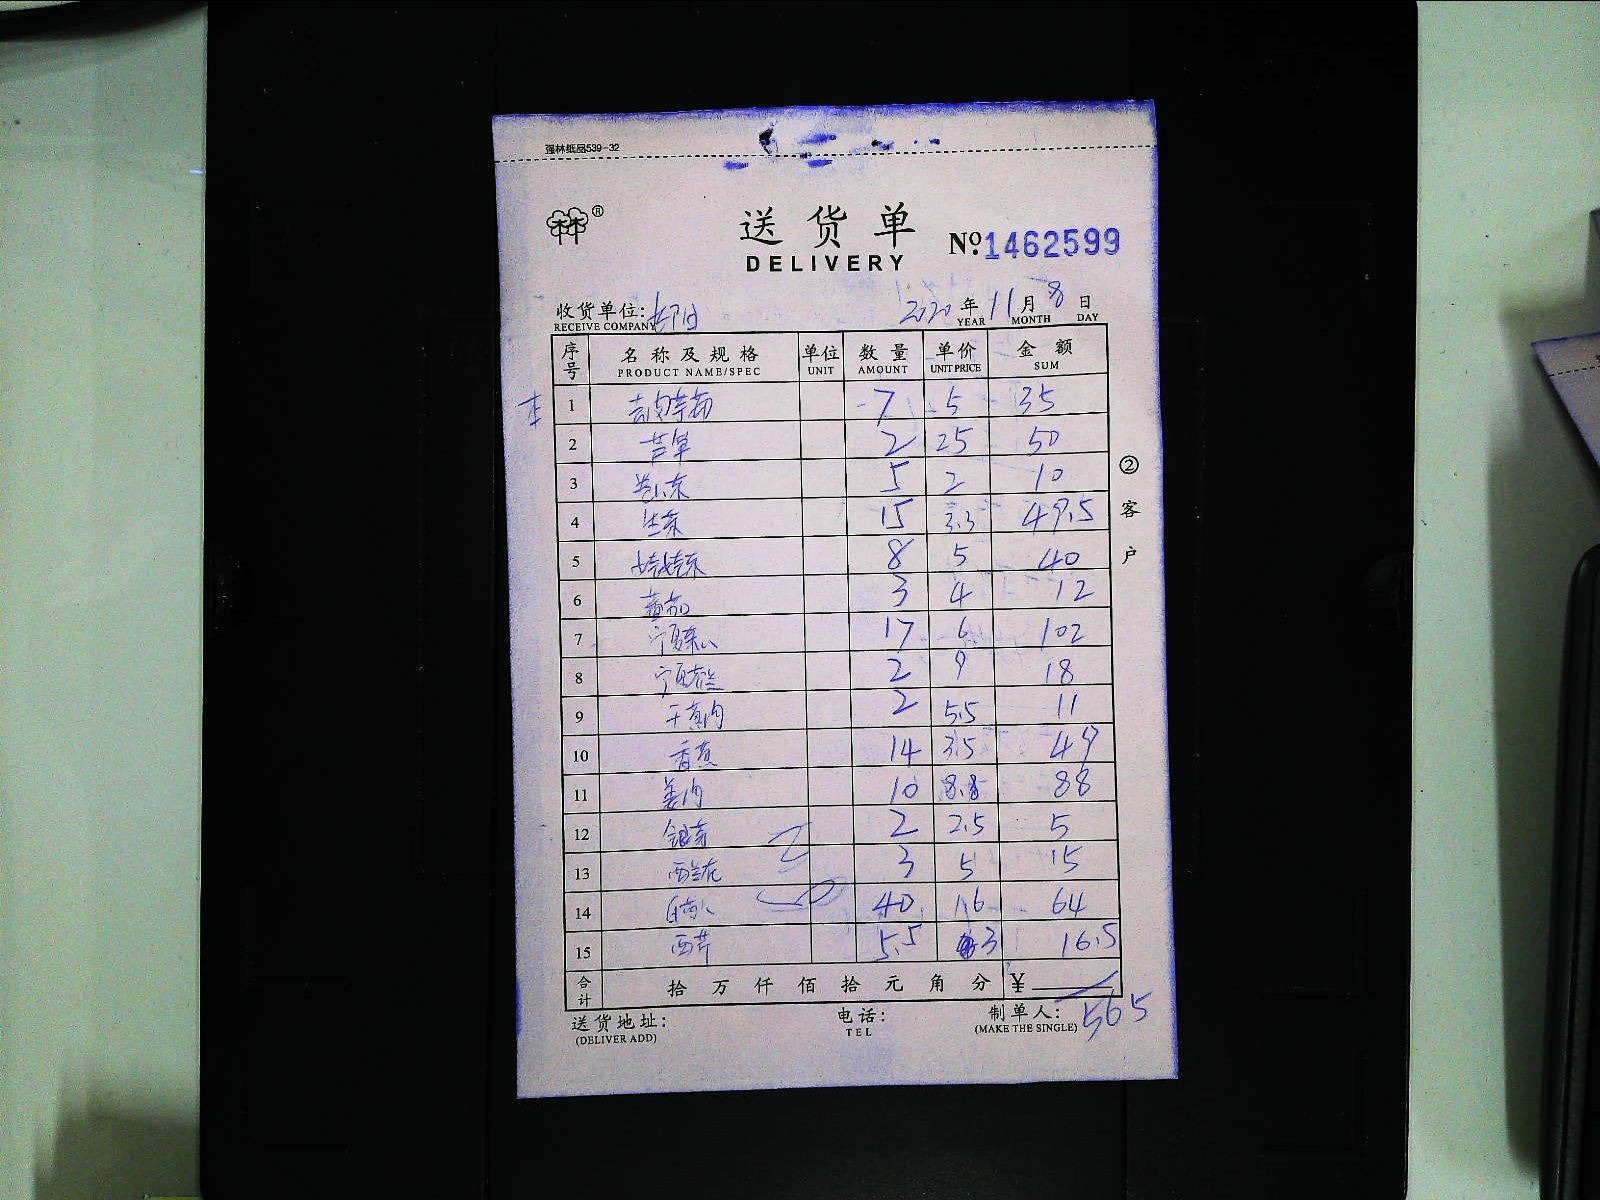 强林纸品539-32
®
送货单
DELIVERY
No: 1462599
收货单位:
RECEIVE COMPANY
2020 年 11 月 8 日
YEAR MONTH DAY
序号 名称及规格 单位 数量 单价 金额
PRODUCT NAME/SPEC UNIT AMOUNT UNIT PRICE SUM
1 7 5 35
2 2 25 50
3 5 2 10
4 生菜 15 3.3 49.5
5 娃娃菜 8 5 40
6 番茄 3 4 12
7 宁夏菜心 17 6 102
8 宁夏芥兰 2 9 18
9 2 5.5 11
10 香蕉 14 3.5 49
11 姜肉 10 8.8 88
12 银芽 2 2.5 5
13 西兰花 3 5 15
14 40 1.6 64
15 西芹 5.5 3 16.5
合计 拾 万 仟 佰 拾 元 角 分 ¥
565
送货地址:
(DELIVER ADD)
电话:
TEL
制单人:
(MAKE THE SINGLE)
② 客户